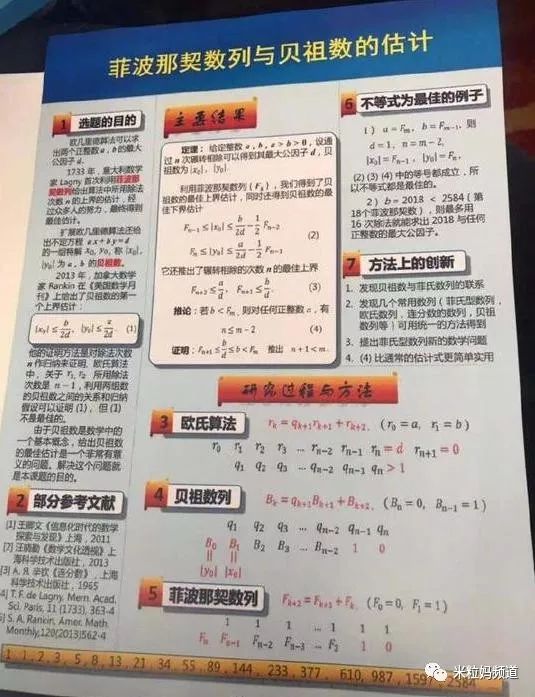 菲波那契数列与贝祖数的估计
1 选题的目的
欧几里德算法可以求
出两个正整数 a , b 的最大
公因子 d .
1733 年,意大利数学
家 Lagny 首次利用菲波那
契数列给出算中所用除法
次数 n 的上界的估计,经
过众多人的努力,最终得到
最佳估计。
扩展欧几里德算法还给
出不定方程 ax + by = d
的一组特解 x₀, y₀, 称 |x₀|,
|y₀| 为 a , b 的贝祖数。
2013 年,加拿大数学
家 Rankin 在《美国数学月
刊》上给出了贝祖数的第一
个上界估计:
|x₀| ≤ b/2d, |y₀| ≤ a/2d. (1)
他的证明方法是对除法次数
n 作归纳来证明. 欧氏算法
中,关于 r₁, r₂ 所用除法
次数是 n − 1 , 利用两组数
的贝祖数之间的关系和归纳
假设可以证明 (1), 但 (1)
不是最佳的。
由于贝祖数是数学中的
一个基本概念,给出贝祖数
的最佳估计是一个非常有意
义的问题。解决这个问题就
是本课题的目的。
2 部分参考文献
[1] 王卿文《信息化时代的数学
探索与发现》上海, 2011
[2] 汪晓勤《数学文化透视》上
海科学技术出版社, 2013
[3] А. Я. 辛钦《连分数》, 上海
科学技术出版社, 1965
4] T. F. de Lagny. Mem. Acad.
Sci. Paris, 11 (1733), 363-4
5] S. A. Rankin, Amer. Math.
Monthly,120(2013)562-4
主要结果
定理: 给定整数 a , b , a > b > 0 , 设通
过 n 次辗转相除可以得到其最大公因子 d , 贝
祖数为 |x₀|, |y₀|.
利用菲波那契数列 ( Fₖ ), 我们得到了贝
祖数的最佳上界估计,同时还得到贝祖数的最
佳下界估计
Fₙ₋₁ ≤ |x₀| ≤ b/d · 1/2 − 1/2 Fₙ₋₂
(2)
Fₙ ≤ |y₀| ≤ a/d · 1/2 − 1/2 Fₙ₋₁
它还推出了辗转相除的次数 n 的最佳上界
Fₙ₊₂ ≤ a/d, Fₙ₊₁ ≤ b/d. (3)
推论: 若 b < Fₘ, 则对任何正整数 a , 有
n ≤ m − 2 (4)
证明: Fₙ₊₁ ≤ b/d ≤ b < Fₘ 推出 n + 1 < m .
6 不等式为最佳的例子
1 ) a = Fₘ, b = Fₘ₋₁, 则
d = 1, n = m − 2,
|x₀| = Fₙ₋₁, |y₀| = Fₙ.
(2) (3) (4) 中的等号都成立,所
以不等式都是最佳的。
2 ) b = 2018 < 2584 ( 第
18个菲波那契数 ), 则最多用
16 次除法就能求出 2018 与任何
正整数的最大公因子。
7 方法上的创新
1. 发现贝祖数与菲氏数列的联系
2. 发现几个常用数列(菲氏型数列,
欧氏数列,连分数的数列,贝祖
数列等)可用统一的方法得到
3. 提出菲氏型数列新的数学问题
4. (4) 比通常的估计式更简单实用
研究过程与方法
3 欧氏算法 rₖ = qₖ₊₁rₖ₊₁ + rₖ₊₂, ( r₀ = a, r₁ = b )
r₀ r₁ r₂ r₃ ... rₙ₋₂ rₙ₋₁ rₙ = d rₙ₊₁ = 0
q₁ q₂ q₃ ... qₙ₋₂ qₙ₋₁ qₙ > 1
4 贝祖数列 Bₖ = qₖ₊₁Bₖ₊₁ + Bₖ₊₂, ( Bₙ = 0, Bₙ₋₁ = 1 )
q₁ q₂ q₃ ... qₙ₋₂ qₙ₋₁ qₙ
B₀ B₁ B₂ B₃ ... Bₙ₋₂ 1 0
|| ||
|y₀| |x₀|
5 菲波那契数列 Fₖ₊₂ = Fₖ₊₁ + Fₖ, ( F₀ = 0, F₁ = 1 )
1 1 1 ... 1 1 1
Fₙ Fₙ₋₁ Fₙ₋₂ Fₙ₋₃ ... F₂ 1 0
1, 1, 2, 3, 5, 8, 13, 21, 34, 55, 89, 144, 233, 377, 610, 987, 1597, 2584
米粒妈频道